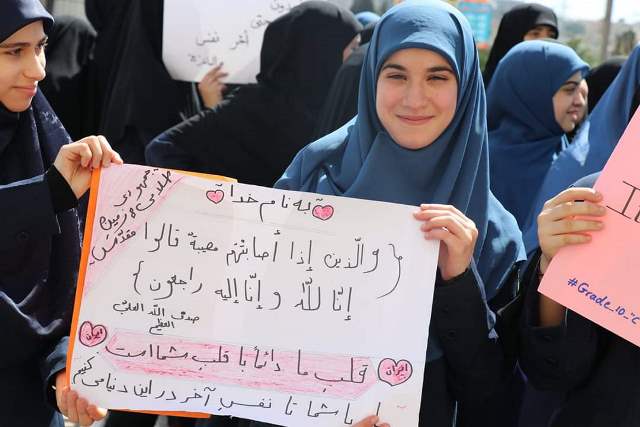 حتى
آخر نفس
به نام خدا
{والّذين إذا أصابتهم مصيبة قالوا
إنّا للّه و إنّا إليه راجعون}
صدق اللّه العليّ
العظيم
ايران
قلب ما دائماً با قلب شما است
ايران
با شما تا نفس آخر در این دنیا می کنیم
#Grade_10_"C